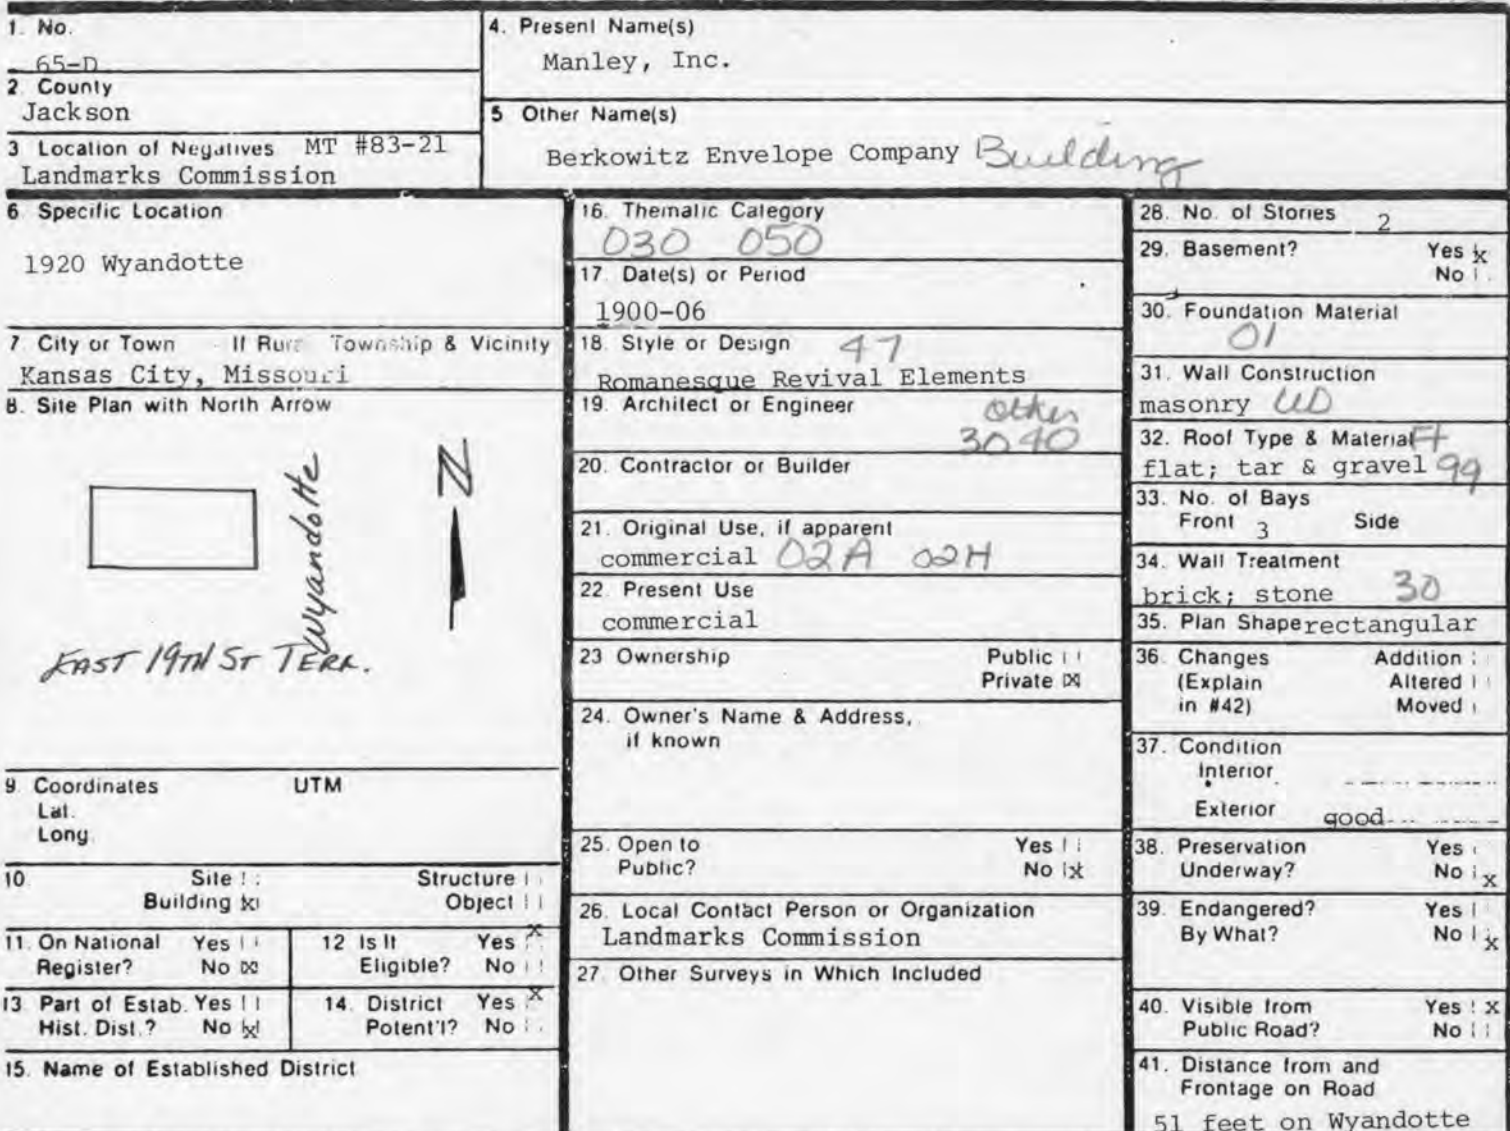 1. No.
65-D
2 County
Jackson
3 Location of Negatives MT #83-21
Landmarks Commission
4. Present Name(s)
Manley, Inc.
5 Other Name(s)
Berkowitz Envelope Company Building
6 Specific Location
1920 Wyandotte
7. City or Town If Rural Township & Vicinity
Kansas City, Missouri
8. Site Plan with North Arrow
Wyandotte
N
EAST 19TH ST TERR.
9 Coordinates UTM
Lat.
Long.
10 Site Structure
Building x Object
11. On National Yes
Register? No x
12 Is It Yes x
Eligible? No
13 Part of Estab. Yes
Hist. Dist.? No x
14. District Yes x
Potent'l? No
15. Name of Established District
16. Thematic Category
030 050
17. Date(s) or Period
1900-06
18. Style or Design 47
Romanesque Revival Elements
19. Architect or Engineer other
3040
20. Contractor or Builder
21. Original Use, if apparent
commercial 02A 02H
22. Present Use
commercial
23 Ownership Public
Private x
24. Owner's Name & Address,
if known
25. Open to Yes
Public? No x
26. Local Contact Person or Organization
Landmarks Commission
27. Other Surveys in Which Included
28. No. of Stories 2
29. Basement? Yes x
No
30. Foundation Material
01
31. Wall Construction
masonry UD
32. Roof Type & Material Ft
flat; tar & gravel 99
33. No. of Bays
Front 3 Side
34. Wall Treatment
brick; stone 30
35. Plan Shape rectangular
36. Changes Addition
(Explain Altered
in #42) Moved
37. Condition
Interior
Exterior good
38. Preservation Yes
Underway? No x
39. Endangered? Yes
By What? No x
40. Visible from Yes x
Public Road? No
41. Distance from and
Frontage on Road
51 feet on Wyandotte